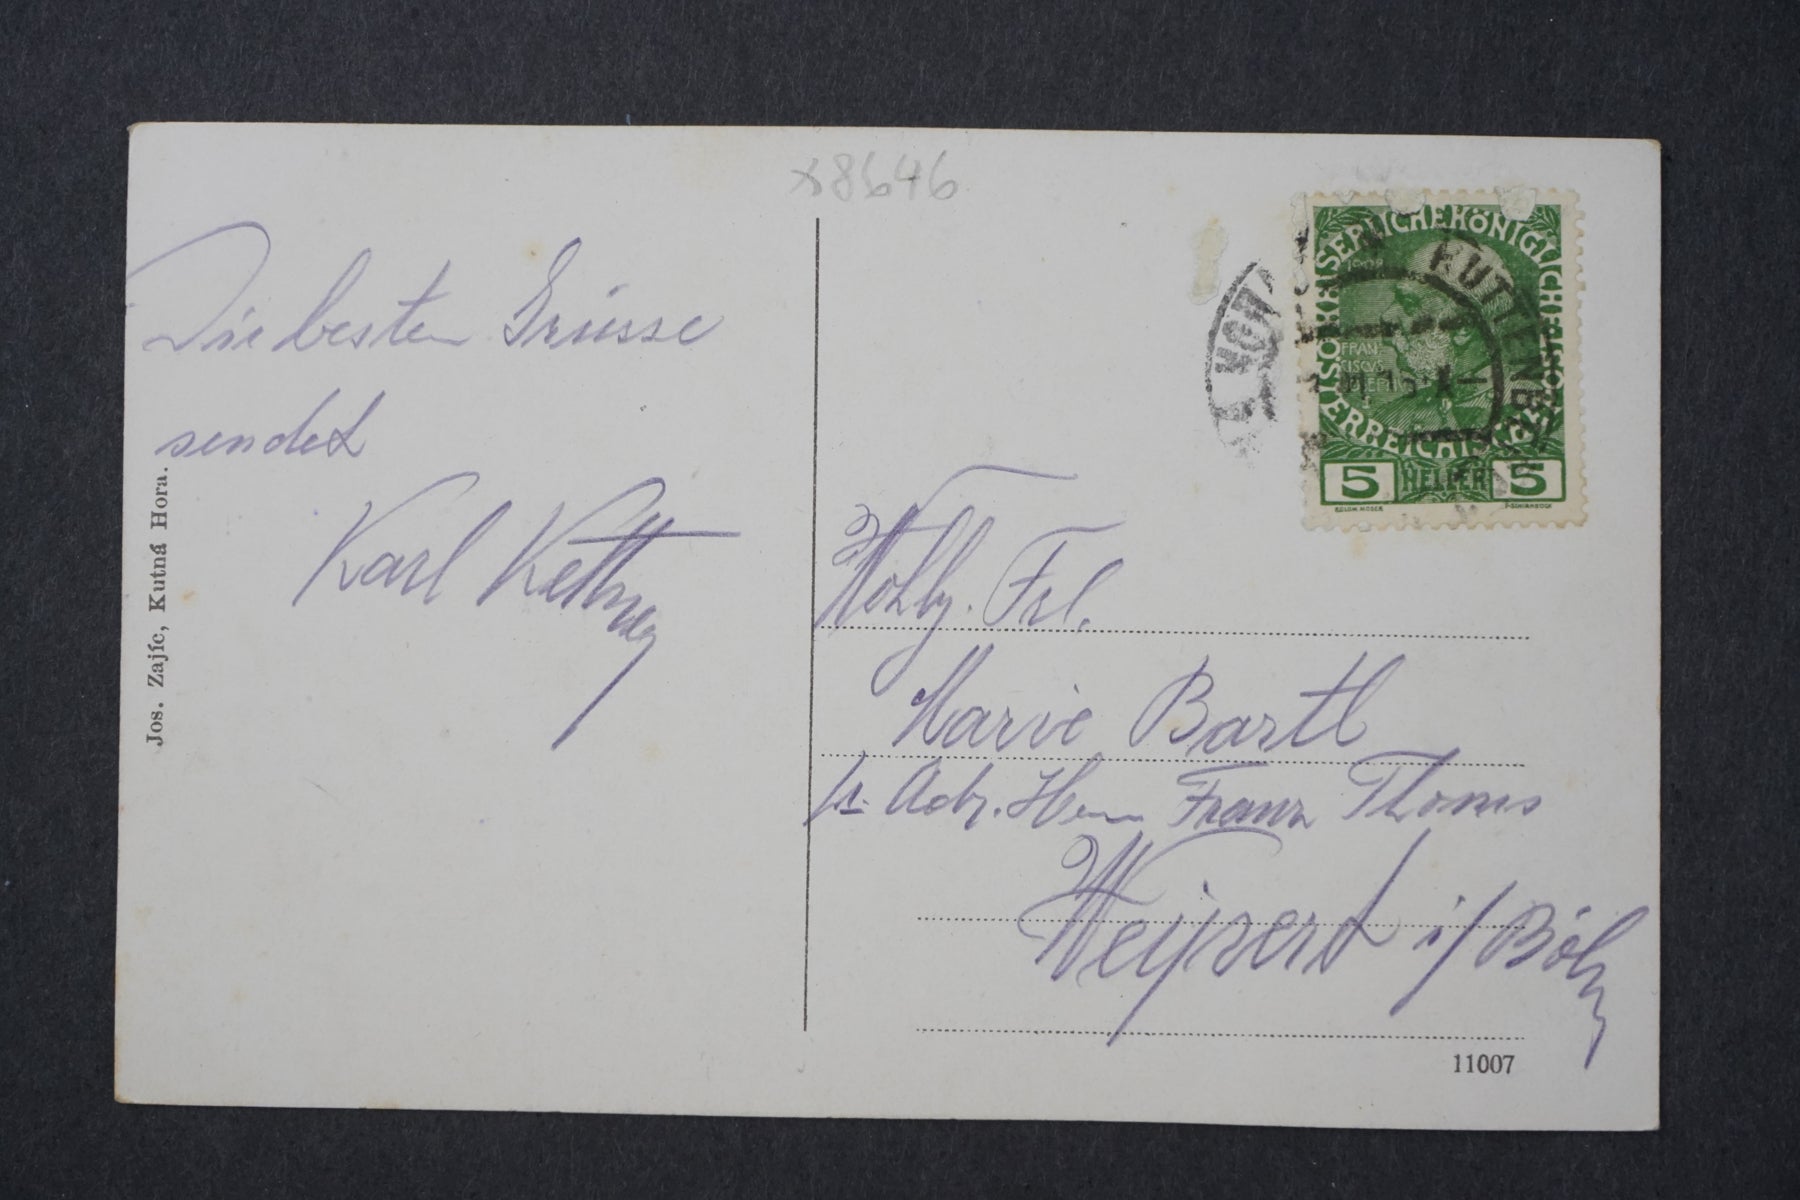 Die besten Grüsse
sendet
Karl Kettner
Jos. Zajíc, Kutná Hora.
x8646
KAISERLICHE KÖNIGLICHE
ÖSTERREICHISCHE POST
1908
FRAN-
CISCVS
JOSEPH I
KUTTENBERG
HORA
5 HELLER 5
KOLOM. MOSER
F. SCHIRNBÖCK
Wohlg. Frl.
Marie Bartl
p. Adr. Herrn Franz Thoms
Weipert i/Böhm
11007